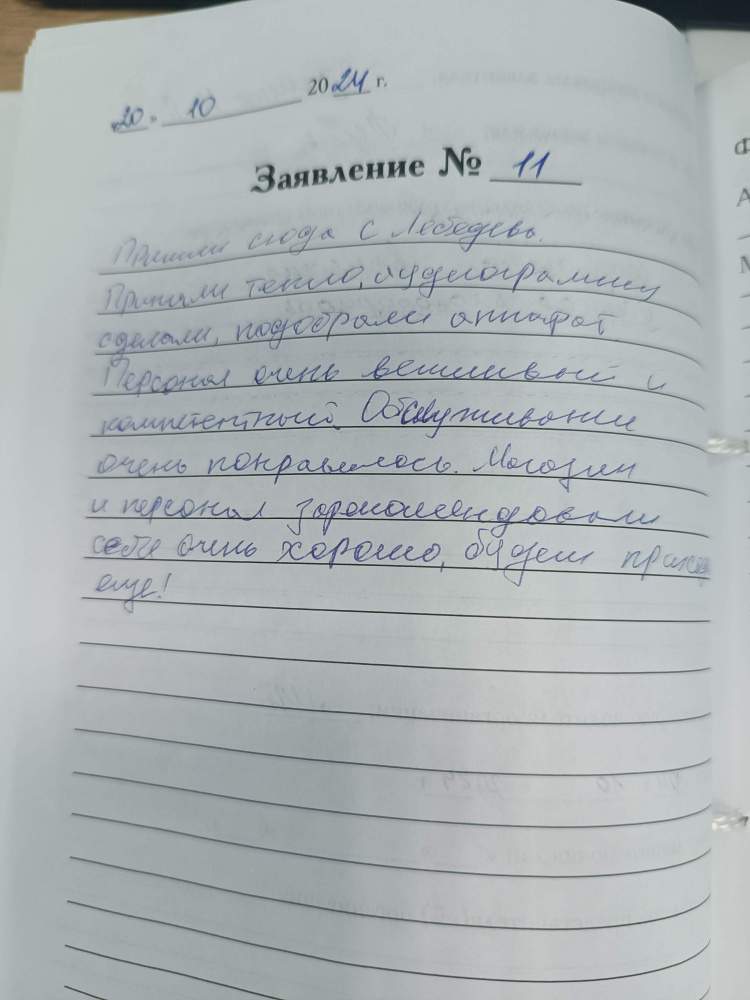 «20» 10 2024 г.
Заявление № 11
Пришли сюда с Лебедево.
Приняли тепло, аудиограмму
сделали, подобрали аппарат.
Персонал очень вежливый и
компетентный. Обслуживание
очень понравилось. Магазин
и персонал зарекомендовали
себя очень хорошо, будем
еще!